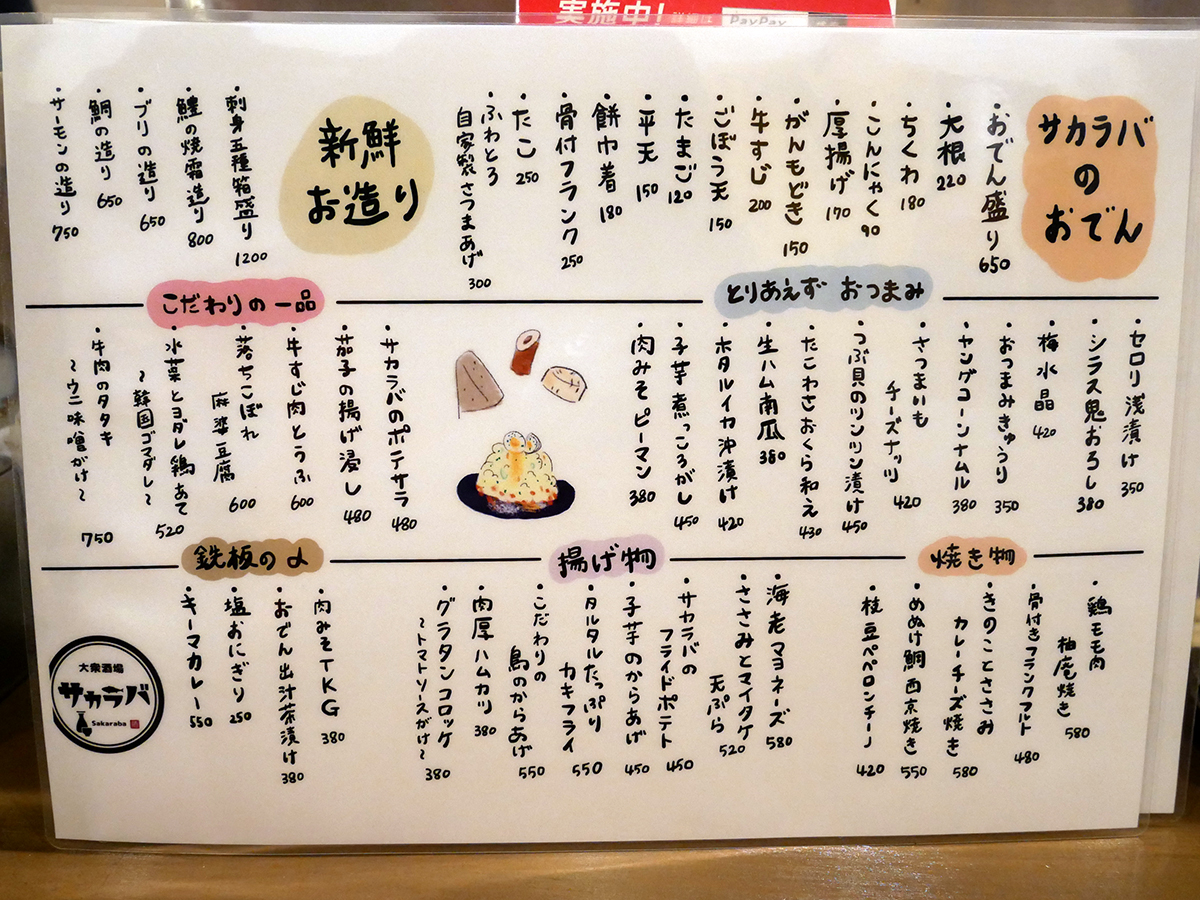 実施中!
PayPay
サカラバ
の
おでん
・おでん盛り 650
・大根 220
・ちくわ 180
・こんにゃく 90
・厚揚げ 170
・がんもどき 150
・牛すじ 200
・ごぼう天 150
・たまご 120
・平天 150
・餅巾着 180
・骨付フランク 250
・たこ 250
・ふわとろ
自家製さつまあげ 300
新鮮
お造り
・刺身五種箱盛り 1200
・鱧の焼霜造り 800
・ブリの造り 650
・鯛の造り 650
・サーモンの造り 750
とりあえず おつまみ
・セロリ浅漬け 350
・シラス鬼おろし 380
・梅水晶 420
・おつまみきゅうり 350
・ヤングコーンナムル 380
・さつまいも
チーズナッツ 420
・つぶ貝のツンツン漬け 450
・たこわさおくら和え 430
・ホタルイカ沖漬け 420
・生ハム南瓜 380
・子芋煮っころがし 450
・肉みそピーマン 380
こだわりの一品
・サカラバのポテサラ 480
・茄子の揚げ浸し 480
・牛すじ肉とうふ 600
・落ちこぼれ
麻婆豆腐 600
・水菜とヨダレ鶏あて
〜韓国ゴマダレ〜 520
・牛肉のタタキ
〜ウニ味噌がけ〜 750
焼き物
・鶏モモ肉
柚庵焼き 580
・骨付きフランクフルト 480
・きのことささみ
カレーチーズ焼き 580
・めぬけ鯛西京焼き 550
・枝豆ペペロンチーノ 420
揚げ物
・海老マヨネーズ 580
・ささみとマイタケ
天ぷら 520
・サカラバの
フライドポテト 450
・子芋のからあげ 450
・タルタルたっぷり
カキフライ 550
・こだわりの
鳥のからあげ 550
・肉厚ハムカツ 380
・グラタンコロッケ
〜トマトソースがけ〜 380
鉄板の〆
・肉みそTKG 380
・おでん出汁茶漬け 380
・塩おにぎり 250
・キーマカレー 550
大衆酒場
サカラバ
Sakaraba